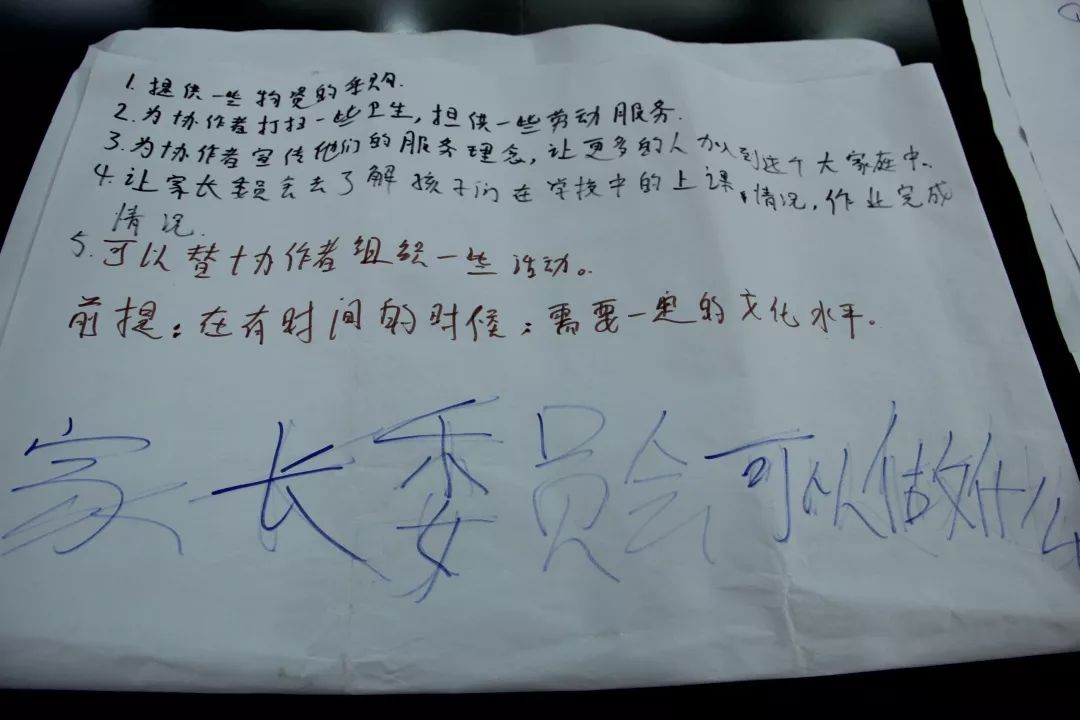 1. 提供一些物资的采购.
2. 为协作者打扫一些卫生，担供一些劳动服务.
3. 为协作者宣传他们的服务理念，让更多的人加入到这个大家庭中。
4. 让家长委员会去了解孩子们在学校中的上课情况，作业完成
情况.
5. 可以替协作者组织一些活动。
前提：在有时间的时候；需要一定的文化水平。
家长委员会可以做什么